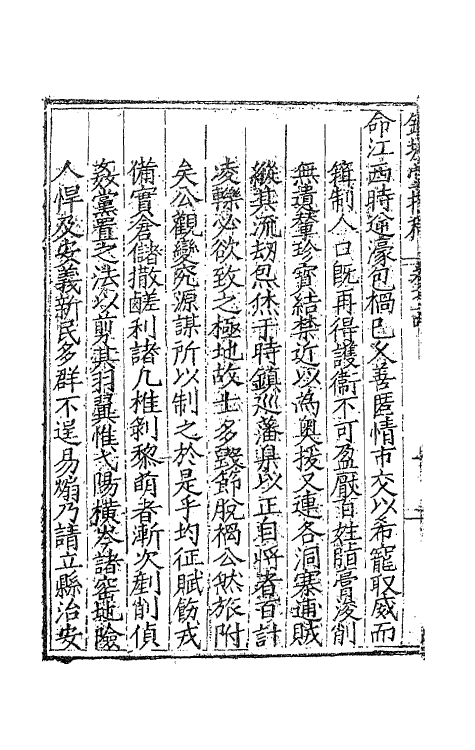 命江西時逆濠包禍已久善匿情市交以希寵取威而
制人口既再得護衞不可盈厭百姓脂膏浚削
無遺輦珍寶結禁近以為奥援又連各洞寨逋賊
縱其流劫炰烋于時鎮巡藩臬以正自將者百計
凌轢必欲致之極地故士多毀節脫禍公然旅附
矣公觀變究源謀所以制之於是乎均征賦飭戎
備實倉儲撤鹺利諸凡椎剝黎萌者漸次剗削偵
姦黨置之法以剪其羽翼惟弋陽橫峯諸窑地險
人悍及安義新民多群不逞易煽乃請立縣治安